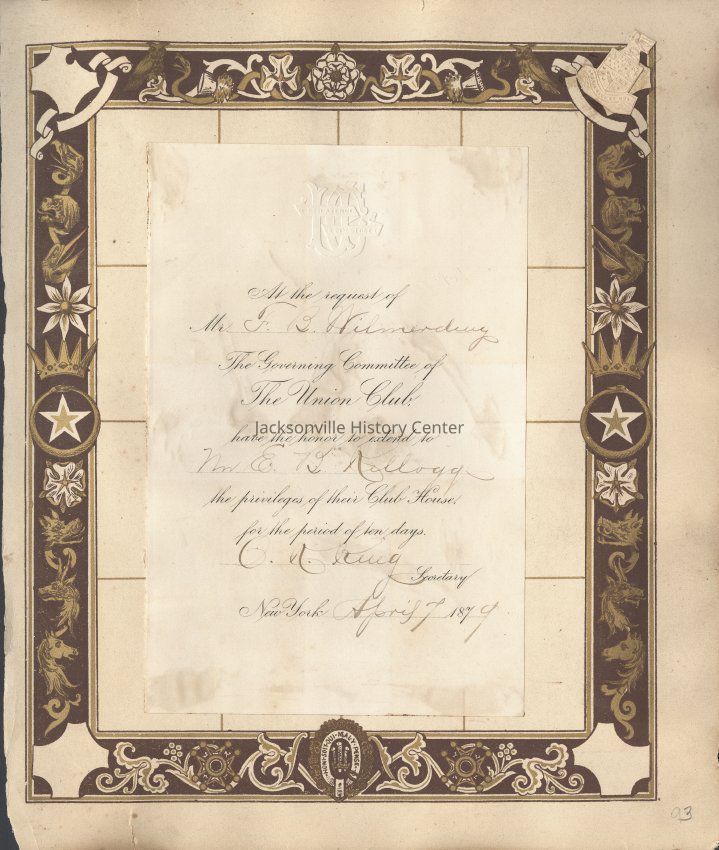 At the request of
Mr. F. B. Wilmerding
The Governing Committee of
The Union Club,
Jacksonville History Center
have the honor to extend to
Mr E. B. Kellogg
the privileges of their Club House,
for the period of ten days.
King
Secretary
New York April 7 1879
HONI·SOIT·QUI·MAL·Y·PENSE
93